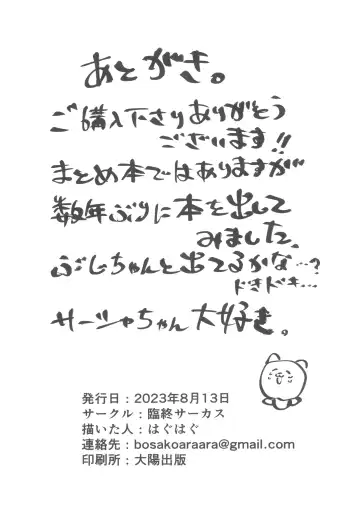 あとがき。
ご購入下さりありがとう
ございます!!
まとめ本ではありますが
数年ぶりに本を出して
みました、
ぶじちゃんと出てるかな…?
ドキドキ…
サーシャちゃん大好き。
発行日：2023年8月13日
サークル：臨終サーカス
描いた人：はぐはぐ
連絡先：bosakoaraara@gmail.com
印刷所：大陽出版